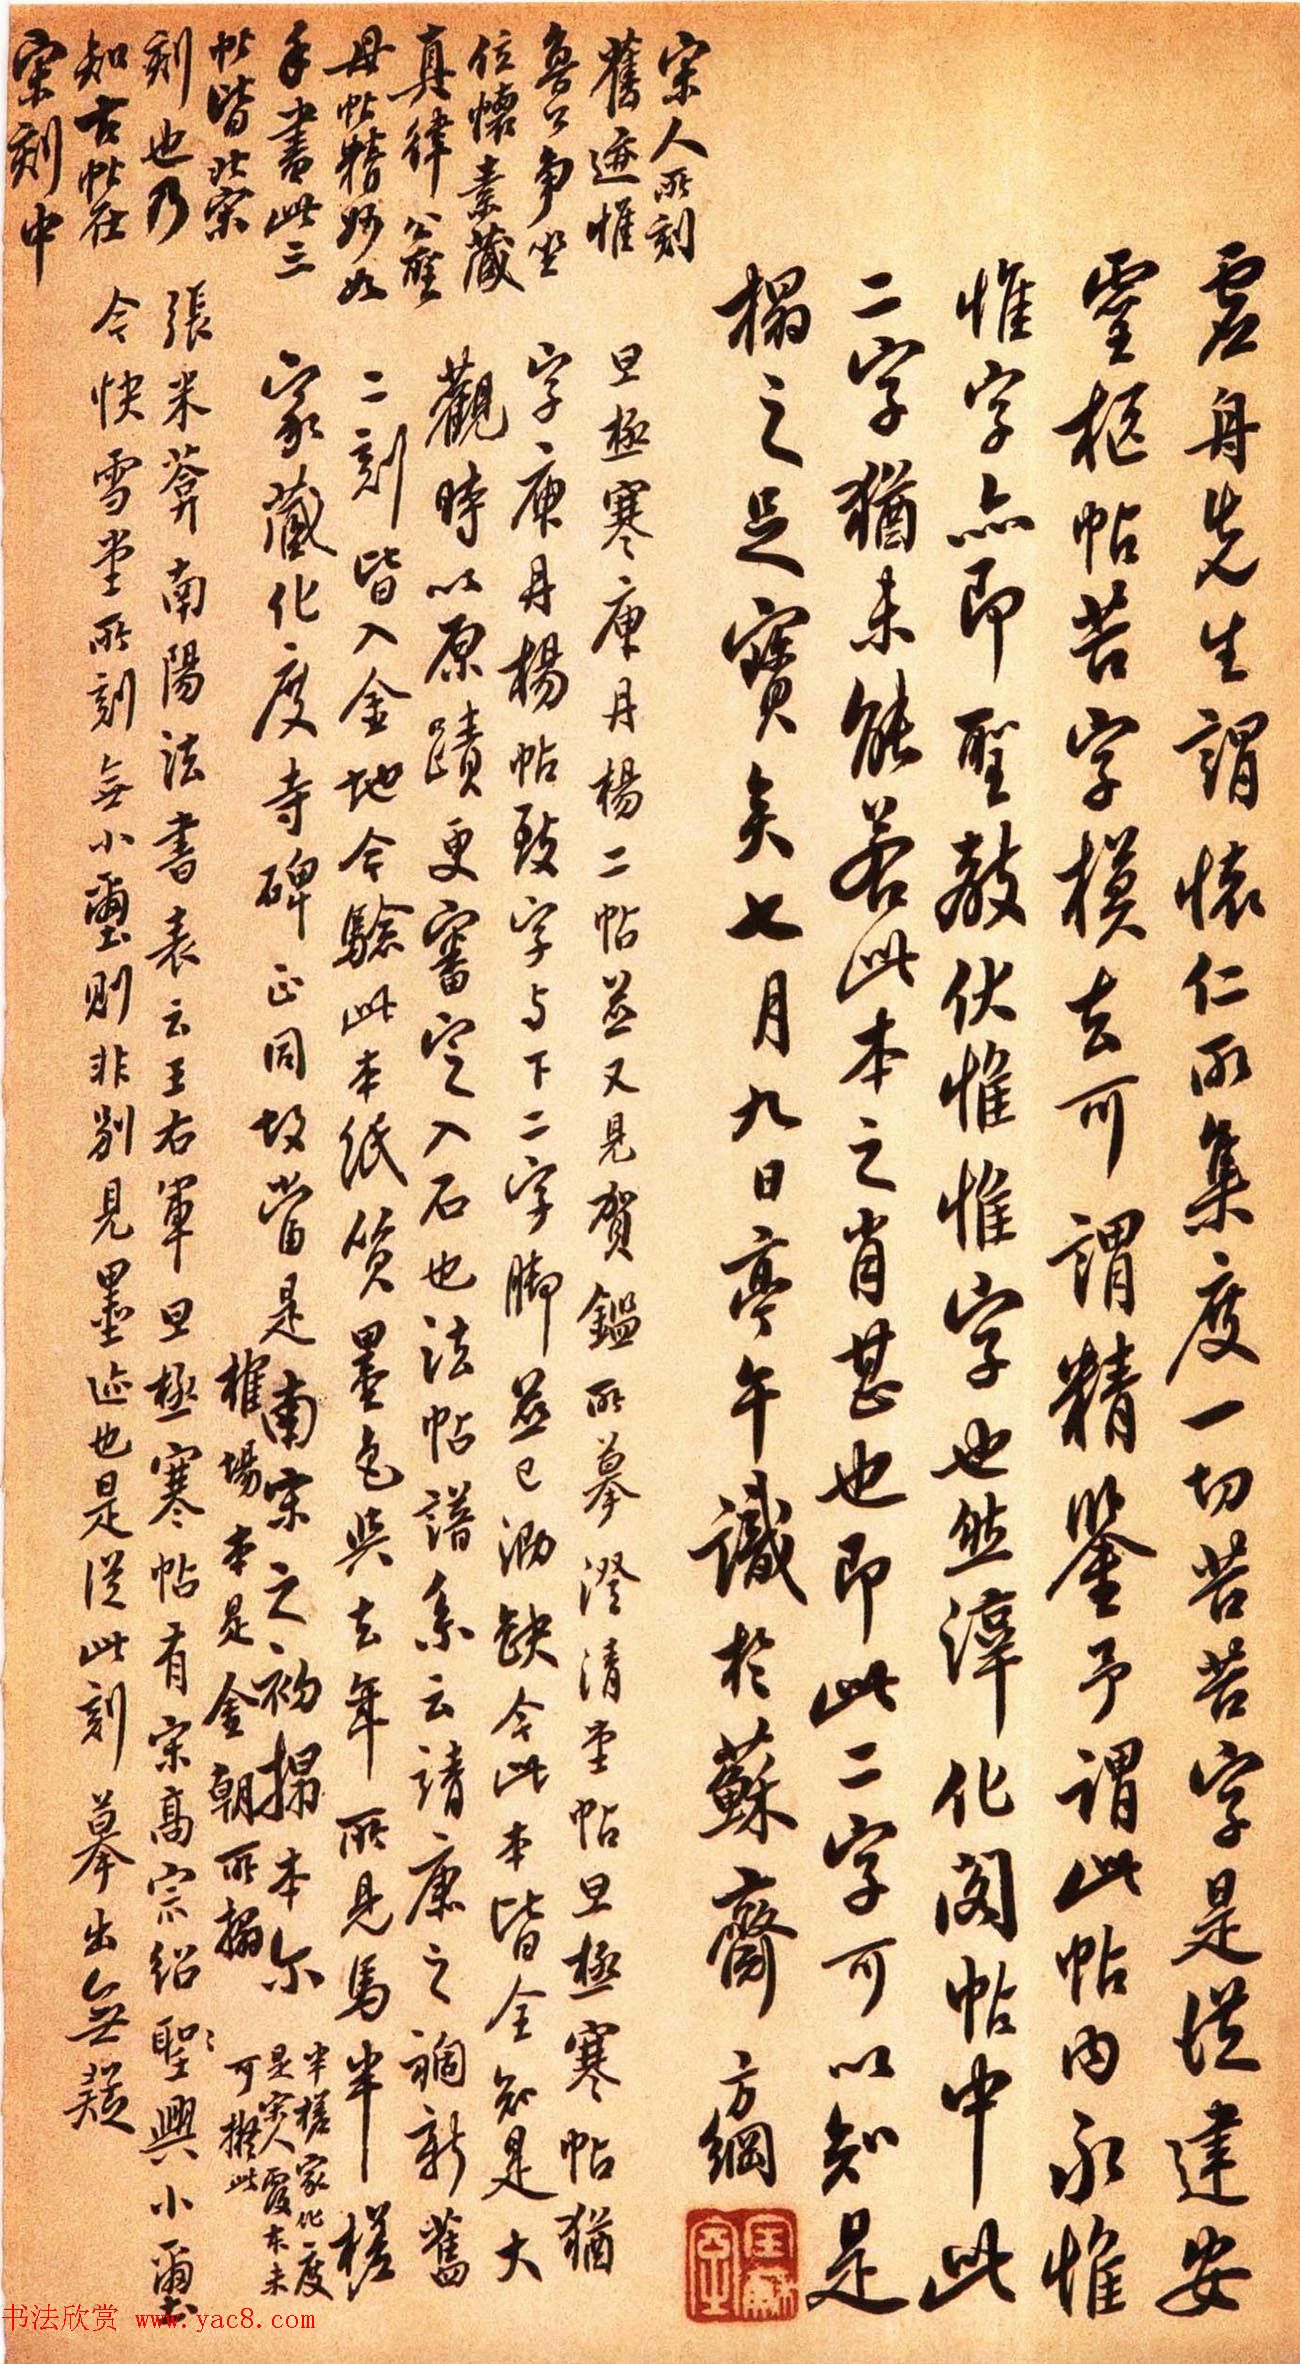 虛舟先生謂懷仁所集度一切苦苦字是從建安
靈柩帖苦字模去可謂精鑒予謂此帖內永惟
惟字亦即聖教伏惟惟字也然淳化閣帖中此
二字猶未能若此本之肖甚也即此二字可以知是
榻之足寶矣七月九日亭午識於蘇齋 方綱
宋人所刻
舊迹惟
魯公爭坐
位懷素藏
真律公廳
母帖精妙如
手書此三
帖皆北宋
刻也乃
知古帖在
宋刻中
旦極寒庚丹楊二帖並又見賀鑑所摹澄清堂帖旦極寒帖猶
字庚丹楊帖致字与下二字腳並已泐缺今此本皆全知是大
觀時以原蹟更審定入石也法帖譜系云靖康之禍新舊
二刻皆入金地今驗此本紙質墨色與去年所見馬半槎
家藏化度寺碑正同故當是南宋之初搨本尔
榷場本是金朝所搨
半槎家化度
是宋人覆本未
可擬此
張米葊南陽法書表云王右軍旦極寒帖有宋高宗紹興小璽
今快雪堂所刻無小璽則非別見墨迹也是從此刻摹出無疑
书法欣赏 www.yac8.com